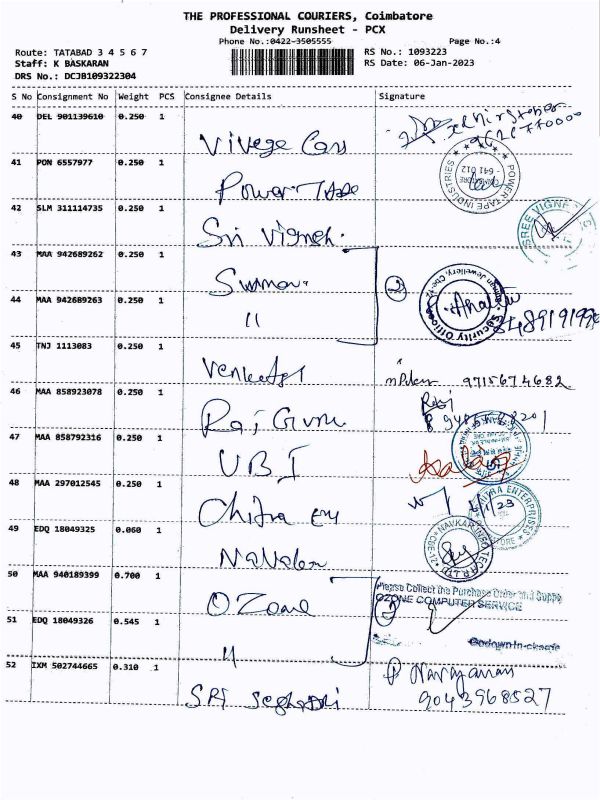 THE PROFESSIONAL COURIERS, Coimbatore
Delivery Runsheet - PCX
Phone No.:0422-3505555 Page No.:4
Route: TATABAD 3 4 5 6 7 RS No.: 1093223
Staff: K BASKARAN RS Date: 06-Jan-2023
DRS No.: DCJB109322304
S No Consignment No Weight PCS Consignee Details Signature
40 DEL 901139610 0.250 1
41 PON 6557977 0.250 1 Power Tape
POWER TAPE INDUSTRIES
641 012
42 SLM 311114735 0.250 1 Sri Vignesh.
SREE VIGNE
43 MAA 942689262 0.250 1
2
44 MAA 942689263 0.250 1 11
Security Officer
45 TNJ 1113083 0.250 1
9715674682
46 MAA 858923078 0.250 1 Raj Guru
47 MAA 858792316 0.250 1 UBI
48 MAA 297012545 0.250 1 Chitra
ENTERPRISES
49 EDQ 18049325 0.060 1
50 MAA 940189399 0.700 1 OZone
Please Collect the Purchase Order and Supply
OZONE COMPUTER SERVICE
51 EDQ 18049326 0.545 1 11
Godown In-charge
52 IXM 502744665 0.310 1 SRI
P Narayanan
9043968527